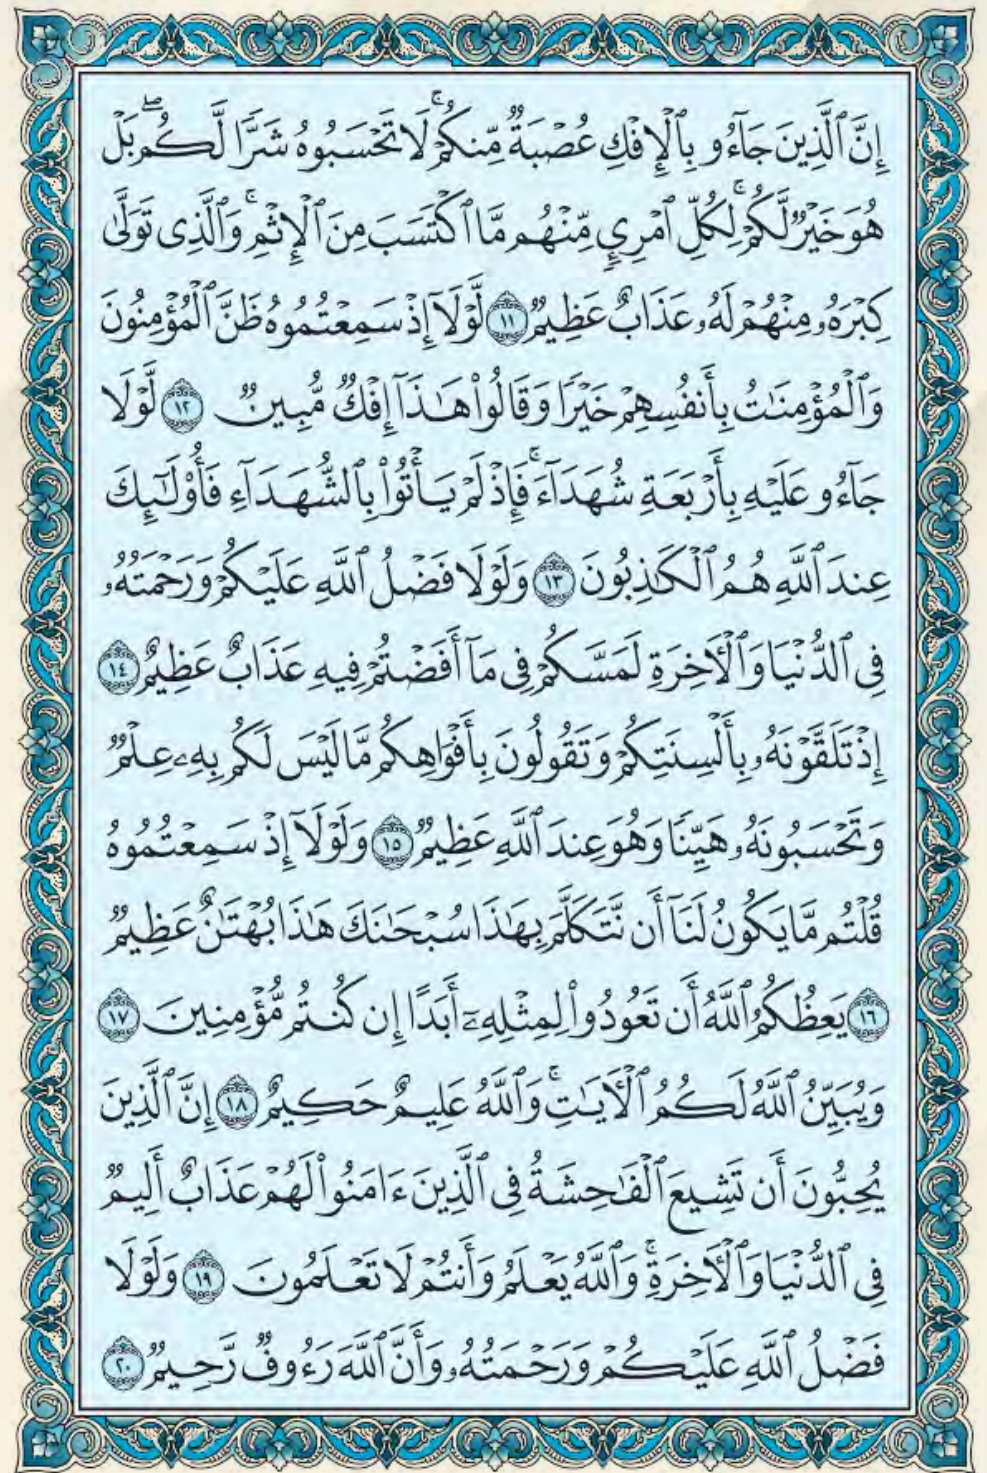 إِنَّ ٱلَّذِينَ جَآءُو بِٱلْإِفْكِ عُصْبَةٌ مِّنكُمْ ۚ لَا تَحْسَبُوهُ شَرًّا لَّكُم ۖ بَلْ
هُوَ خَيْرٌ لَّكُمْ ۚ لِكُلِّ ٱمْرِئٍ مِّنْهُم مَّا ٱكْتَسَبَ مِنَ ٱلْإِثْمِ ۚ وَٱلَّذِى تَوَلَّىٰ
كِبْرَهُۥ مِنْهُمْ لَهُۥ عَذَابٌ عَظِيمٌ ١١ لَّوْلَآ إِذْ سَمِعْتُمُوهُ ظَنَّ ٱلْمُؤْمِنُونَ
وَٱلْمُؤْمِنَٰتُ بِأَنفُسِهِمْ خَيْرًا وَقَالُوا۟ هَٰذَآ إِفْكٌ مُّبِينٌ ١٢ لَّوْلَا
جَآءُو عَلَيْهِ بِأَرْبَعَةِ شُهَدَآءَ ۚ فَإِذْ لَمْ يَأْتُوا۟ بِٱلشُّهَدَآءِ فَأُو۟لَٰٓئِكَ
عِندَ ٱللَّهِ هُمُ ٱلْكَٰذِبُونَ ١٣ وَلَوْلَا فَضْلُ ٱللَّهِ عَلَيْكُمْ وَرَحْمَتُهُۥ
فِى ٱلدُّنْيَا وَٱلْـَٔاخِرَةِ لَمَسَّكُمْ فِى مَآ أَفَضْتُمْ فِيهِ عَذَابٌ عَظِيمٌ ١٤
إِذْ تَلَقَّوْنَهُۥ بِأَلْسِنَتِكُمْ وَتَقُولُونَ بِأَفْوَاهِكُم مَّا لَيْسَ لَكُم بِهِۦ عِلْمٌ
وَتَحْسَبُونَهُۥ هَيِّنًا وَهُوَ عِندَ ٱللَّهِ عَظِيمٌ ١٥ وَلَوْلَآ إِذْ سَمِعْتُمُوهُ
قُلْتُم مَّا يَكُونُ لَنَآ أَن نَّتَكَلَّمَ بِهَٰذَا سُبْحَٰنَكَ هَٰذَا بُهْتَٰنٌ عَظِيمٌ
١٦ يَعِظُكُمُ ٱللَّهُ أَن تَعُودُوا۟ لِمِثْلِهِۦٓ أَبَدًا إِن كُنتُم مُّؤْمِنِينَ ١٧
وَيُبَيِّنُ ٱللَّهُ لَكُمُ ٱلْـَٔايَٰتِ ۚ وَٱللَّهُ عَلِيمٌ حَكِيمٌ ١٨ إِنَّ ٱلَّذِينَ
يُحِبُّونَ أَن تَشِيعَ ٱلْفَٰحِشَةُ فِى ٱلَّذِينَ ءَامَنُوا۟ لَهُمْ عَذَابٌ أَلِيمٌ
فِى ٱلدُّنْيَا وَٱلْـَٔاخِرَةِ ۚ وَٱللَّهُ يَعْلَمُ وَأَنتُمْ لَا تَعْلَمُونَ ١٩ وَلَوْلَا
فَضْلُ ٱللَّهِ عَلَيْكُمْ وَرَحْمَتُهُۥ وَأَنَّ ٱللَّهَ رَءُوفٌ رَّحِيمٌ ٢٠